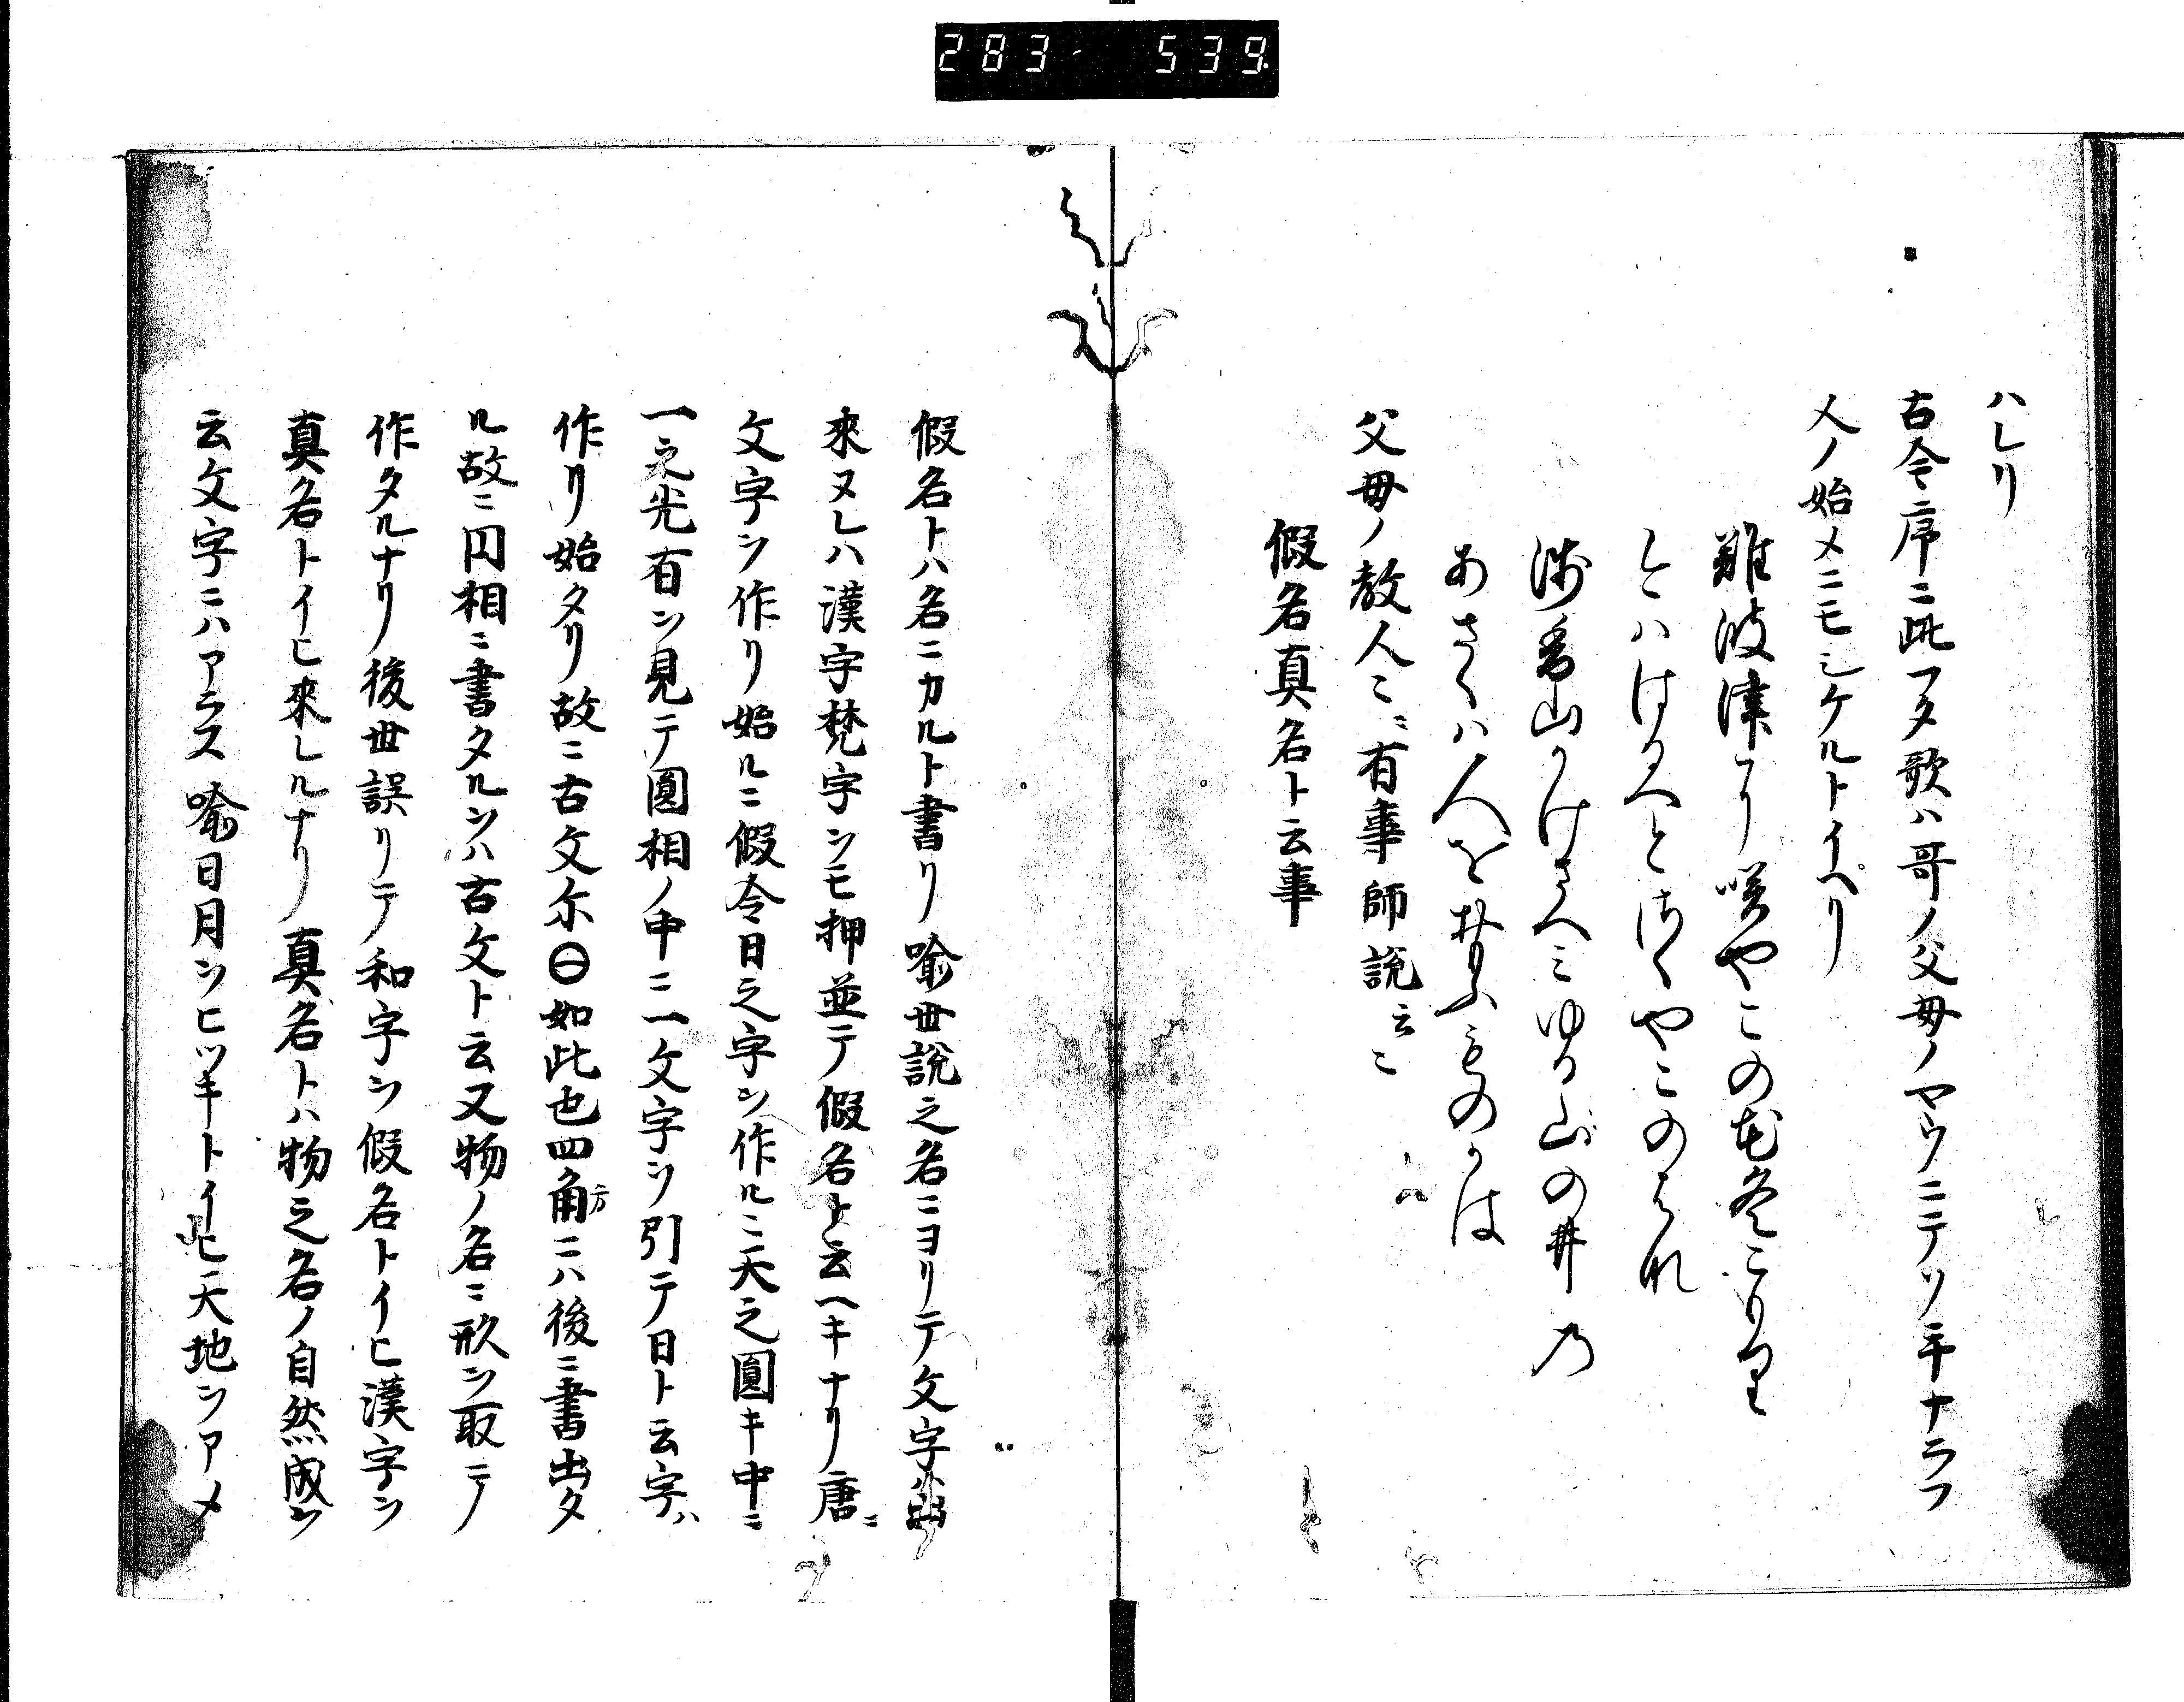 283- 539.
ハレリ
古今序ニ此フタ歌ハ哥ノ父母ノヤウニテソ手ナラフ
人ノ始メニモシケルトイヘリ
難波津に咲やこの花冬こもり
とハはるへとさくやこのはな
浅香山かけさへミゆる山の井の
あさくハ人をおもふものかは
父母ノ教人ニ有事師説云々
假名真名ト云事
假名トハ名ニカルト書リ喩世説之名ニヨリテ文字
來ヌレハ漢字梵字ヲモ押並テ假名ト云ヘキナリ唐ニ
文字ヲ作リ始ルニ假令日之字ヲ作ルニ天之圓キ中ニ
一之光有ヲ見テ圓相ノ中ニ一文字ヲ引テ日ト云字ハ
作リ始タリ故ニ古文尓㊀如此也四角方ニハ後ニ書出タ
ル故ニ円相ニ書タルヲハ古文ト云又物ノ名ニ形ヲ取テ
作タルナリ後世誤リテ和字ヲ假名トイヒ漢字ヲ
真名トイヒ來レルナリ真名トハ物之名ノ自然成ヲ
云文字ニハアラス喩日月ヲヒツキトイヒ天地ヲアメ